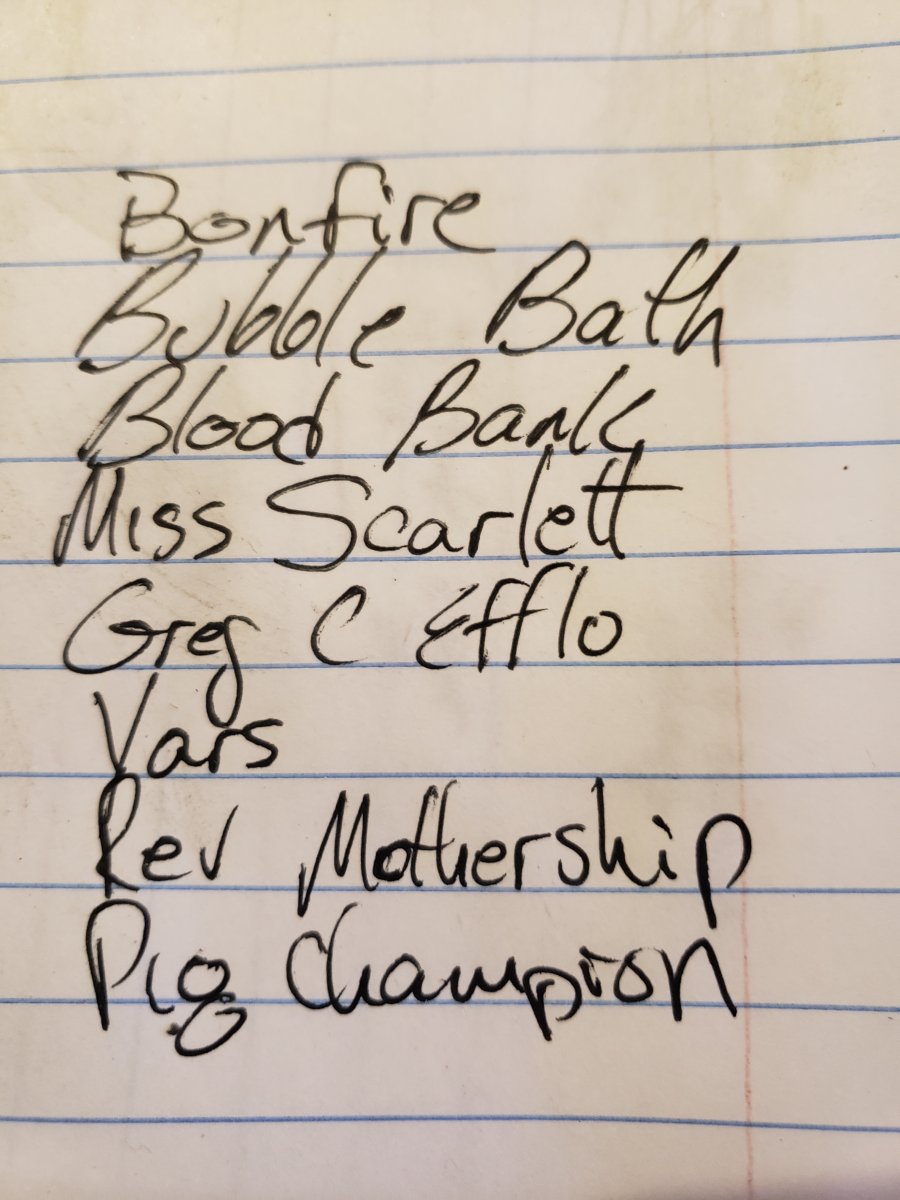 Bonfire
Bubble Bath
Blood Bank
Miss Scarlett
Greg C Efflo
Vars
Rev Mothership
Pig Champion